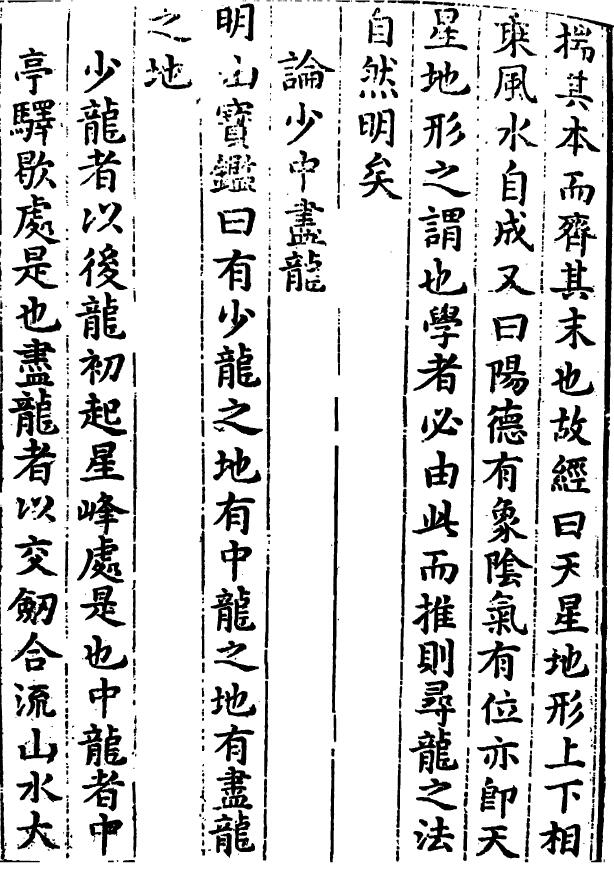 揣其本而齊其末也故經曰天星地形上下相
乘風水自成又曰陽德有象陰氣有位亦即天
星地形之謂也學者必由此而推則尋龍之法
自然明矣
論少中盡龍
明山寶鑑曰有少龍之地有中龍之地有盡龍
之地
少龍者以後龍初起星峰處是也中龍者中
亭驛歇處是也盡龍者以交劒合流山水大